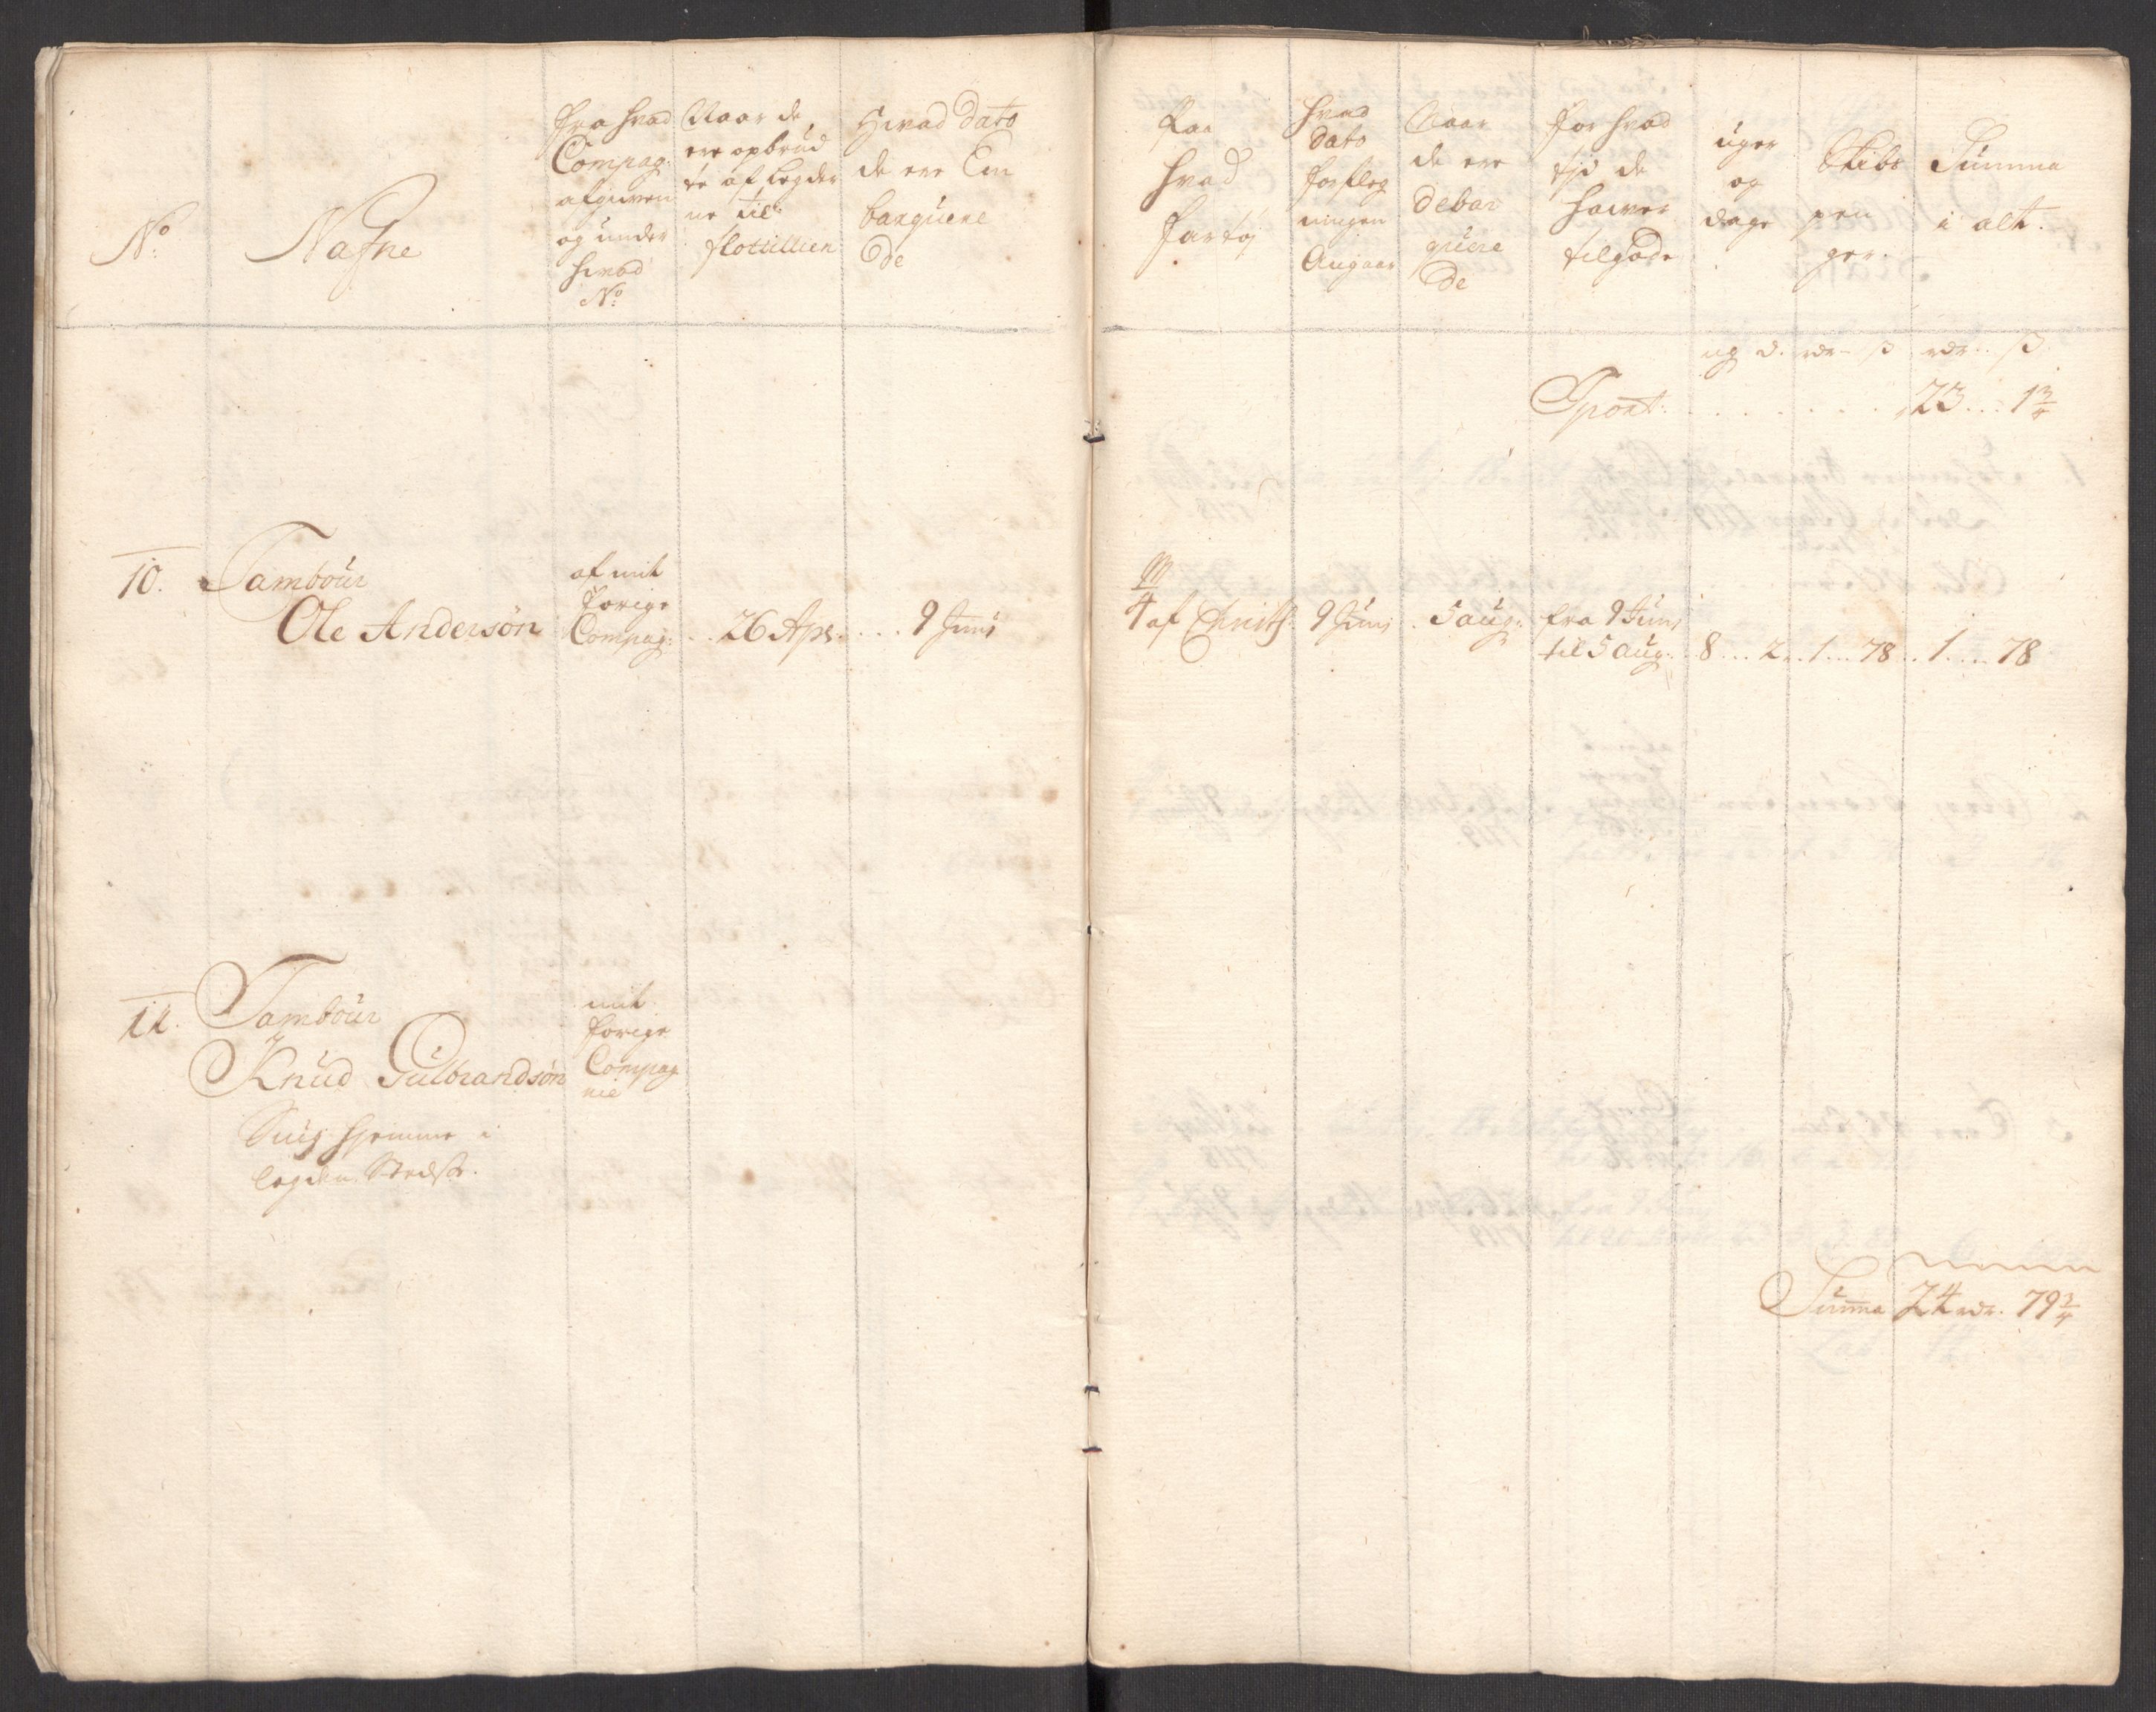 No
Nafne
fra hvad
Compag:
afgiven
og under
hvad
No
Naar de
ere opbrud
te af Legder
ne til
flottillien
Hvad Dato
de ere Em
barquere
de
Paa
hvad
fartøj
hvad
Dato
forpleg
ningen
Angaar
Naar
de ere
debar
quere
de
for hvad
tjd de
hawer
tilgode
uger
og
dage
Skibs
pen
ger
Summa
i alt.
ug d. rdr ß rdr ß
Tport. 23 1 3/4
10. Tambour
Ole Andersøn
af mit
forige
Compag: 26 Apr. 9 Junj
4 af Christ: 9 Junj 5 aug: fra 9 Junj
til 5 aug. 8 2 1 78 1 78
11. Tambour
Knud Gulbrandsøn
mit
forige
Compag
nie
Siug hjemme i
legden
Summa 24 rdr. 79 3/4